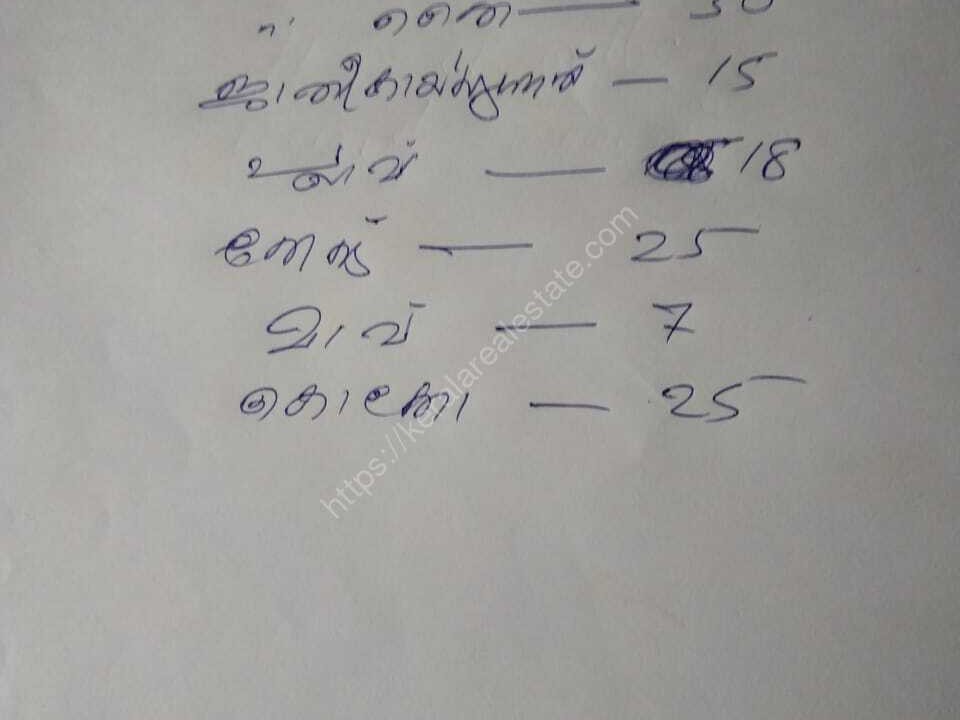 " തൈ — 30
ജാതി കായ്ക്കുന്നത് — 15
പ്ലാവ് — 18
തേക്ക് — 25
മാവ് — 7
കൊക്കോ — 25
https://keralarealestate.com